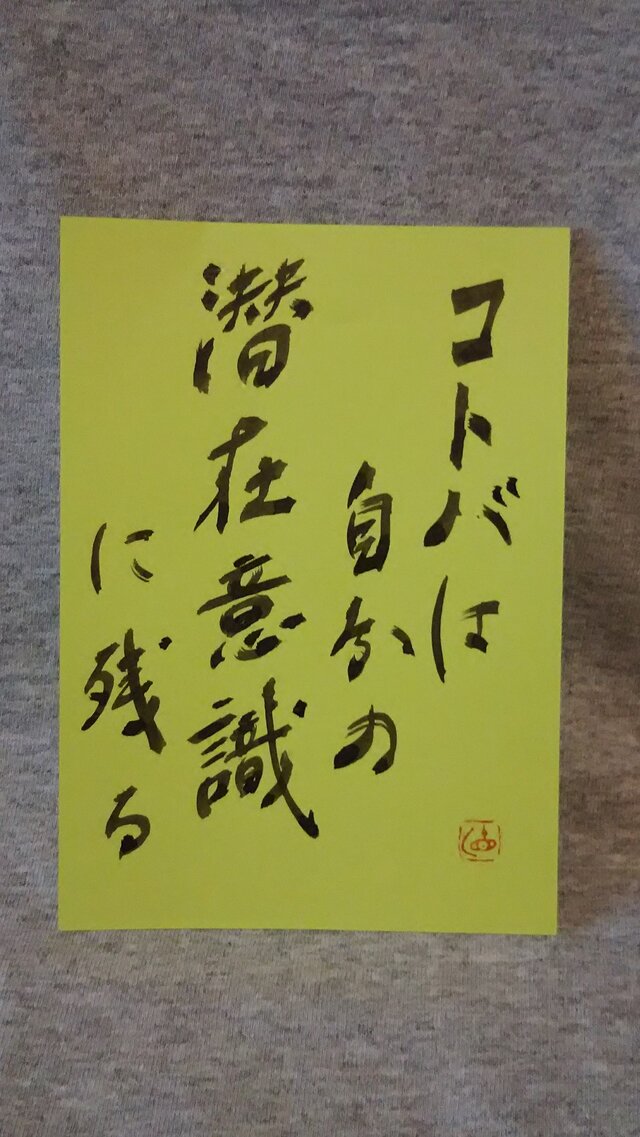 コトバは
自分の
潜在意識
に残る